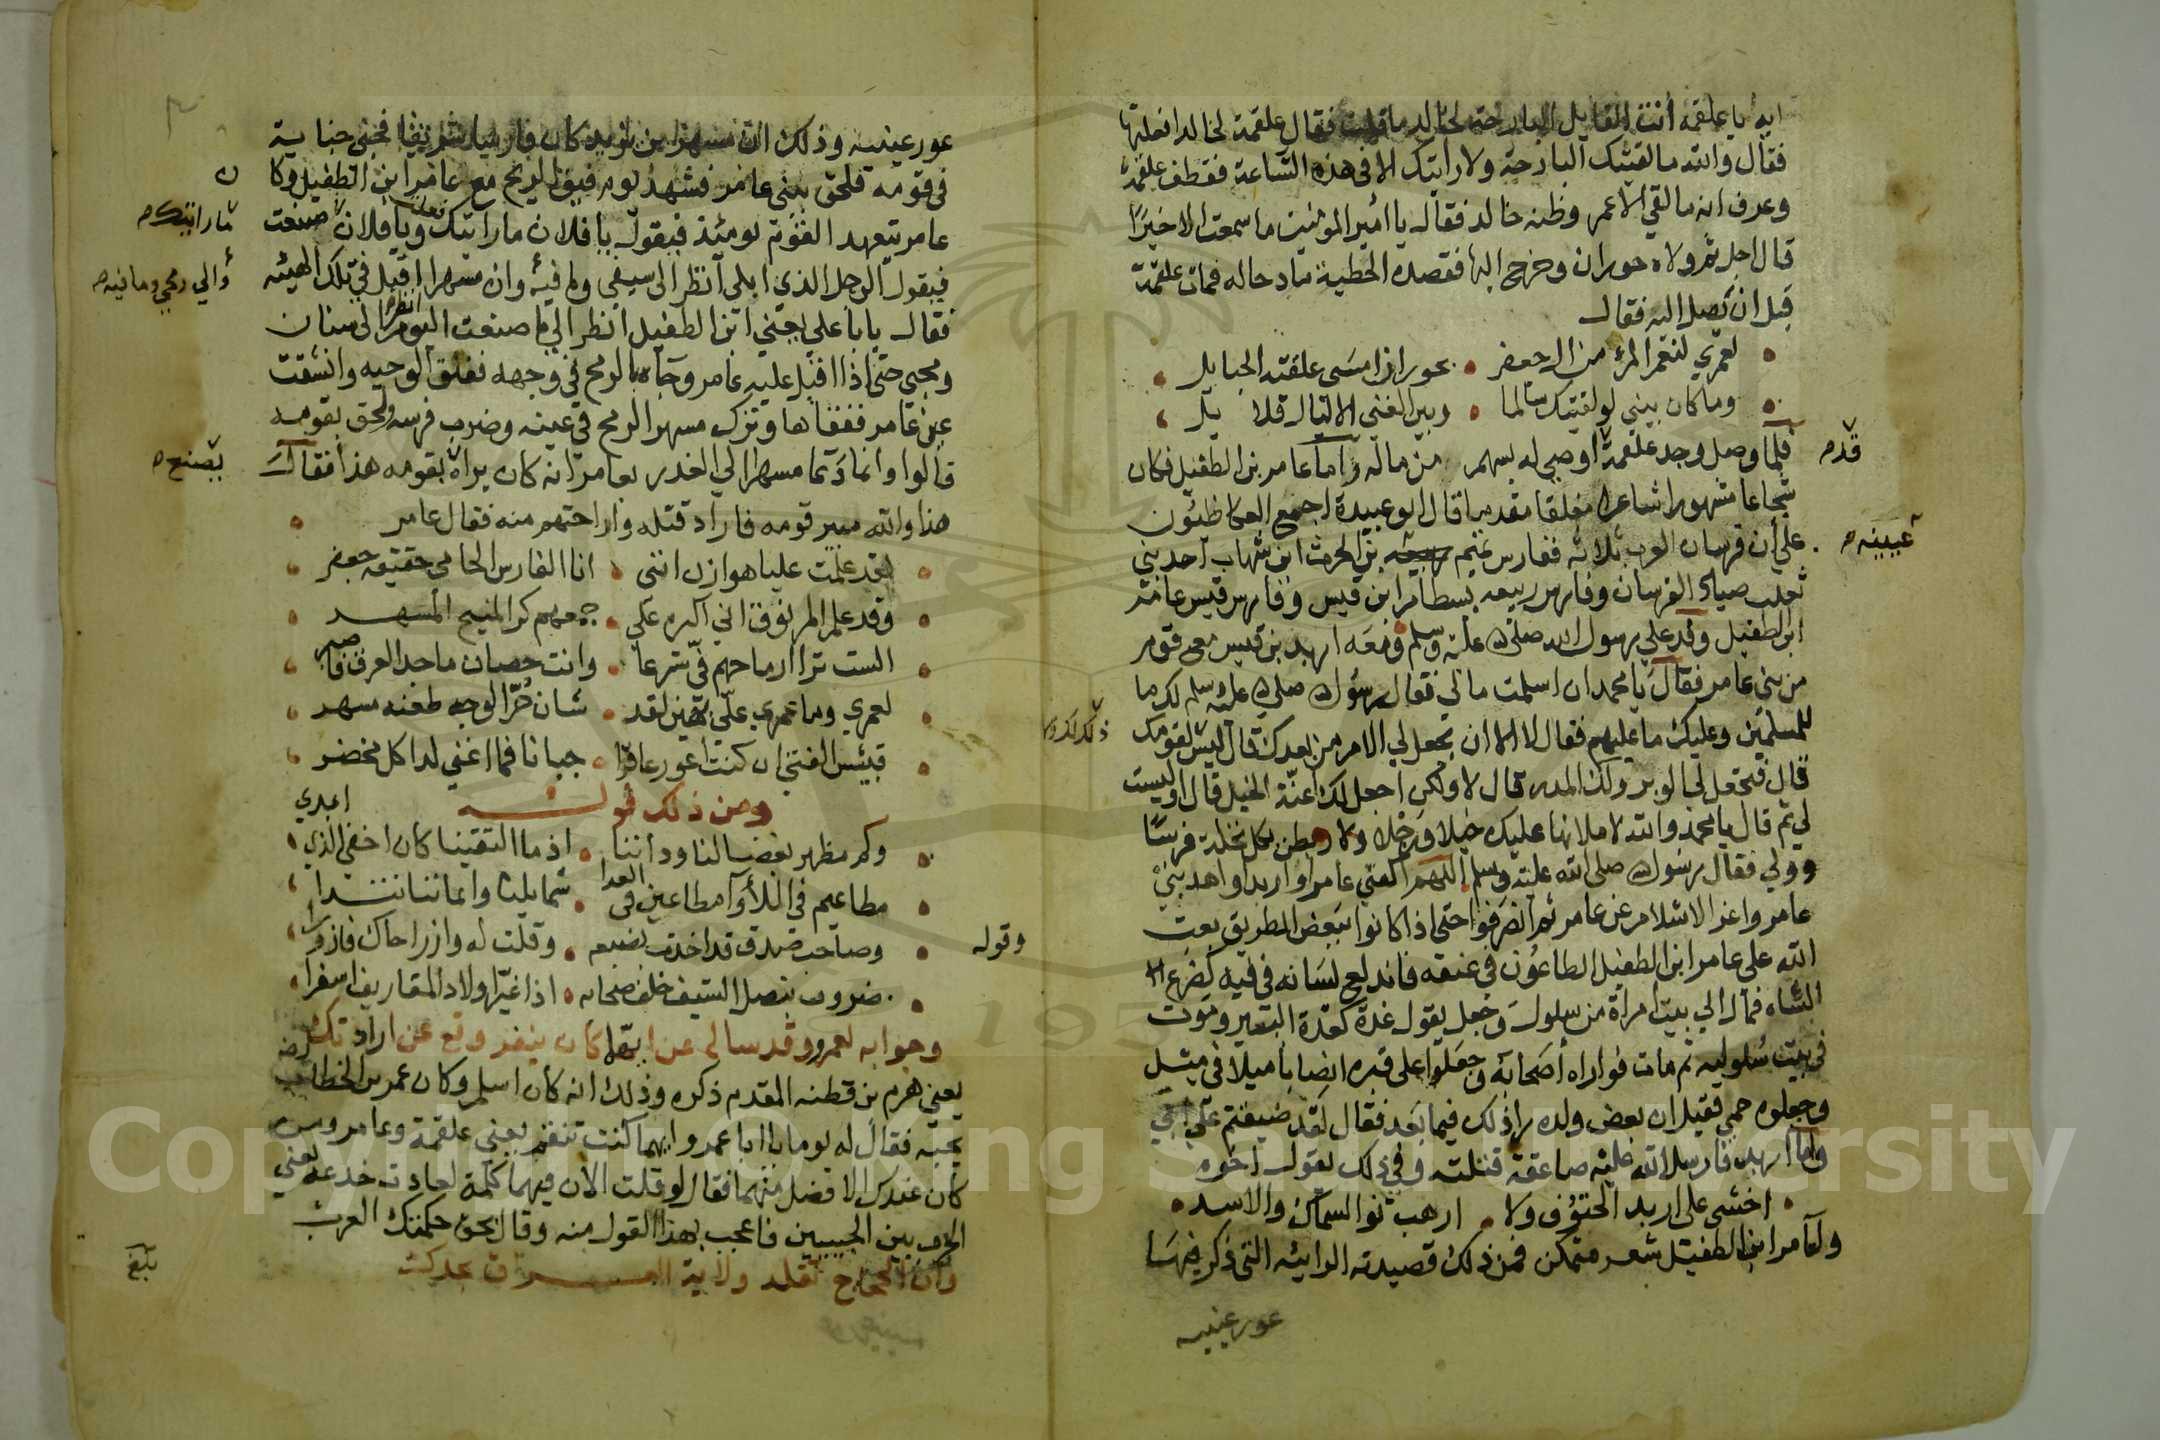 ايه يا علقمة أنت القايل البارحة لخالد ما قلت فقال علقمة لخالد افعلتها
فقال والله ما لقيتك البارحة ولا رايتك الا في هذه الساعة ففطن علقمة
وعرف انه ما لقي الا عمر وظنه خالد فقال يا امير المؤمنين ما سمعت الا خيرًا
قال اجل ثم ولاه حوران وخرج اليها فقصده الحطية شاد حاله فمات علقمة
قبل ان يصل اليه فقال
لعمري لنعم المرء من ال جعفر • بحوران امسى علقته الحبايل
وما كان بيني لو لقيتك سالما • وبين الغني الا ليال قلايل
فلما وصل وجد علقمة اوصى له بسهم من ماله واما عامر بن الطفيل فكان
قدم
شجاعا مشهورا شاعرا مفلقا مقدما قال ابو عبيدة اجتمع العكاظيون
على أن فرسان العرب ثلاثة ففارس تميم بن الحرث ابن شهاب احد بني
عيينه
ثعلب صياد الفرسان وفارس ربيعه بسطام ابن قيس وفارس قيس عامر
ابن الطفيل وفد على رسول الله صلى الله عليه وسلم ومعه اربد بن قيس مع قوم
من بني عامر فقال يا محمد ان اسلمت ما لي فقال رسول الله صلى الله عليه وسلم لك ما
للمسلمين وعليك ما عليهم فقال لا الا ان تجعل لي الامر من بعدك قال ليس لقومك
قال فتجعل لي الوبر ولك المدر قال لا ولكن اجعل لك اعنة الخيل قال اوليست
لي ثم قال يا محمد والله لاملانها عليك خيلا ورجلا ولا ربطن بكل نخلة فرسًا
وولي فقال رسول الله صلى الله عليه وسلم اللهم اكفني عامرا واربد واهد بني
عامر واغن الاسلام عن عامر ثم انصرفوا حتى اذا كانوا ببعض الطريق بعث
الله على عامر ابن الطفيل الطاعون في عنقه فاندلع لسانه في فيه كضرع
الشاه فمال الي بيت امراة من سلول وجعل يقول غدة كغدة البعير وموت
في بيت سلوليه ثم مات فواراه أصحابه وجعلوا على قبره انصابا ميلا في ميل
وجعلوه حمي فقيل ان بعض ولده راى ذلك فيما بعد فقال لقد ضيقتم على ابي
واما اربد فارسل الله عليه صاعقة قتلته وفي ذلك يقول اخوه
اخشى على اربد الحتوف ولا • ارهب نوء السماك والاسد
ولعامر ابن الطفيل شعر متمكن فمن ذلك قصيدته الرائيه التي ذكر فيها
عور عينيه
عور عينيه وذلك ان مسهرا بن يزيد كان فارسا شريفا فجني جناية
في قومه فلحق ببني عامر فشهد يوم فيف الريح مع عامر ابن الطفيل وكا
ن
عامر يتعهد القوم يومئذ فيقول يا فلان ما رايتك ويا فلان صنعت
ما رايتك
فيقول الرجل الذي ابلي انظر الى سيفي وما فيه وان مسهرا اقبل في تلك الهيئه
والي رمحي وما فيه
فقال يا ابا علي يعني ابن الطفيل انظر الي ما صنعت اليوم انظر الى سنان
رمحي حتى اذا اقبل عليه عامر وجاه بالرمح في وجهه ففلق الوجنه وانشقت
عين عامر ففقاها وترك مسهر الرمح في عينه وضرب فرسه ولحق بقومه
قالوا وانما دعا مسهرا الي الغدر بعامر انه كان يراه بقومه هذا فقال
يصنع
هذا والله مبير قومه فاراد قتله واراحتهم منه فقال عامر
لقد علمت عليا هوازن انني • انا الفارس الحامي حقيقه جعفر
وقد علم المزنوق اني اكره على • جمعهم كر المنيح المشهـر
الست ترا ارماحهم في شرعا • وانت حصان ماجد العرق فاصبر
لعمري وما عمري علي بهين لقد • شان حر الوجه طعنه مسهر
فبئس الفتى ان كنت اعور عاقرا • جبانا فما اغني لدا كل محضر
ومن ذلك قولـــه
وكم مظهر بغضا لنا ود أننا • اذ ما التقينا كان اخفى الذي ابدي
مطاعيم في اللأوا مطاعين في العدا • شمايلنا وايماننا تندا
وقوله
وصاحب صدق قد اخذت بضبعه • وقلت له وازر اخاك فازرا
ضروب بنصل السيف خلف صحابه • اذا غبرا ولاد المقاريف اسفرا
وجوابه لعمر وقد ساله عن ايهما كان ينفر وقع عن ارادتك
يعني هرم بن قطنه المقدم ذكره وذلك انه كان اسلم وكان عمر بن الخطاب رضه
يحبه فقال له يوما يا ابا عمرو ايهما كنت تنفر يعني علقمة وعامر ومن
كان عندك الافضل منهما فقال لو قلت الان فيهما كلمة لعادت خدعة يعني
الحرب بين الحيين فاعجب بهذا القول منه وقال بحق حكمتك العرب
وان الحجاج تقلد ولاية العـــراق بجدك
بلغ